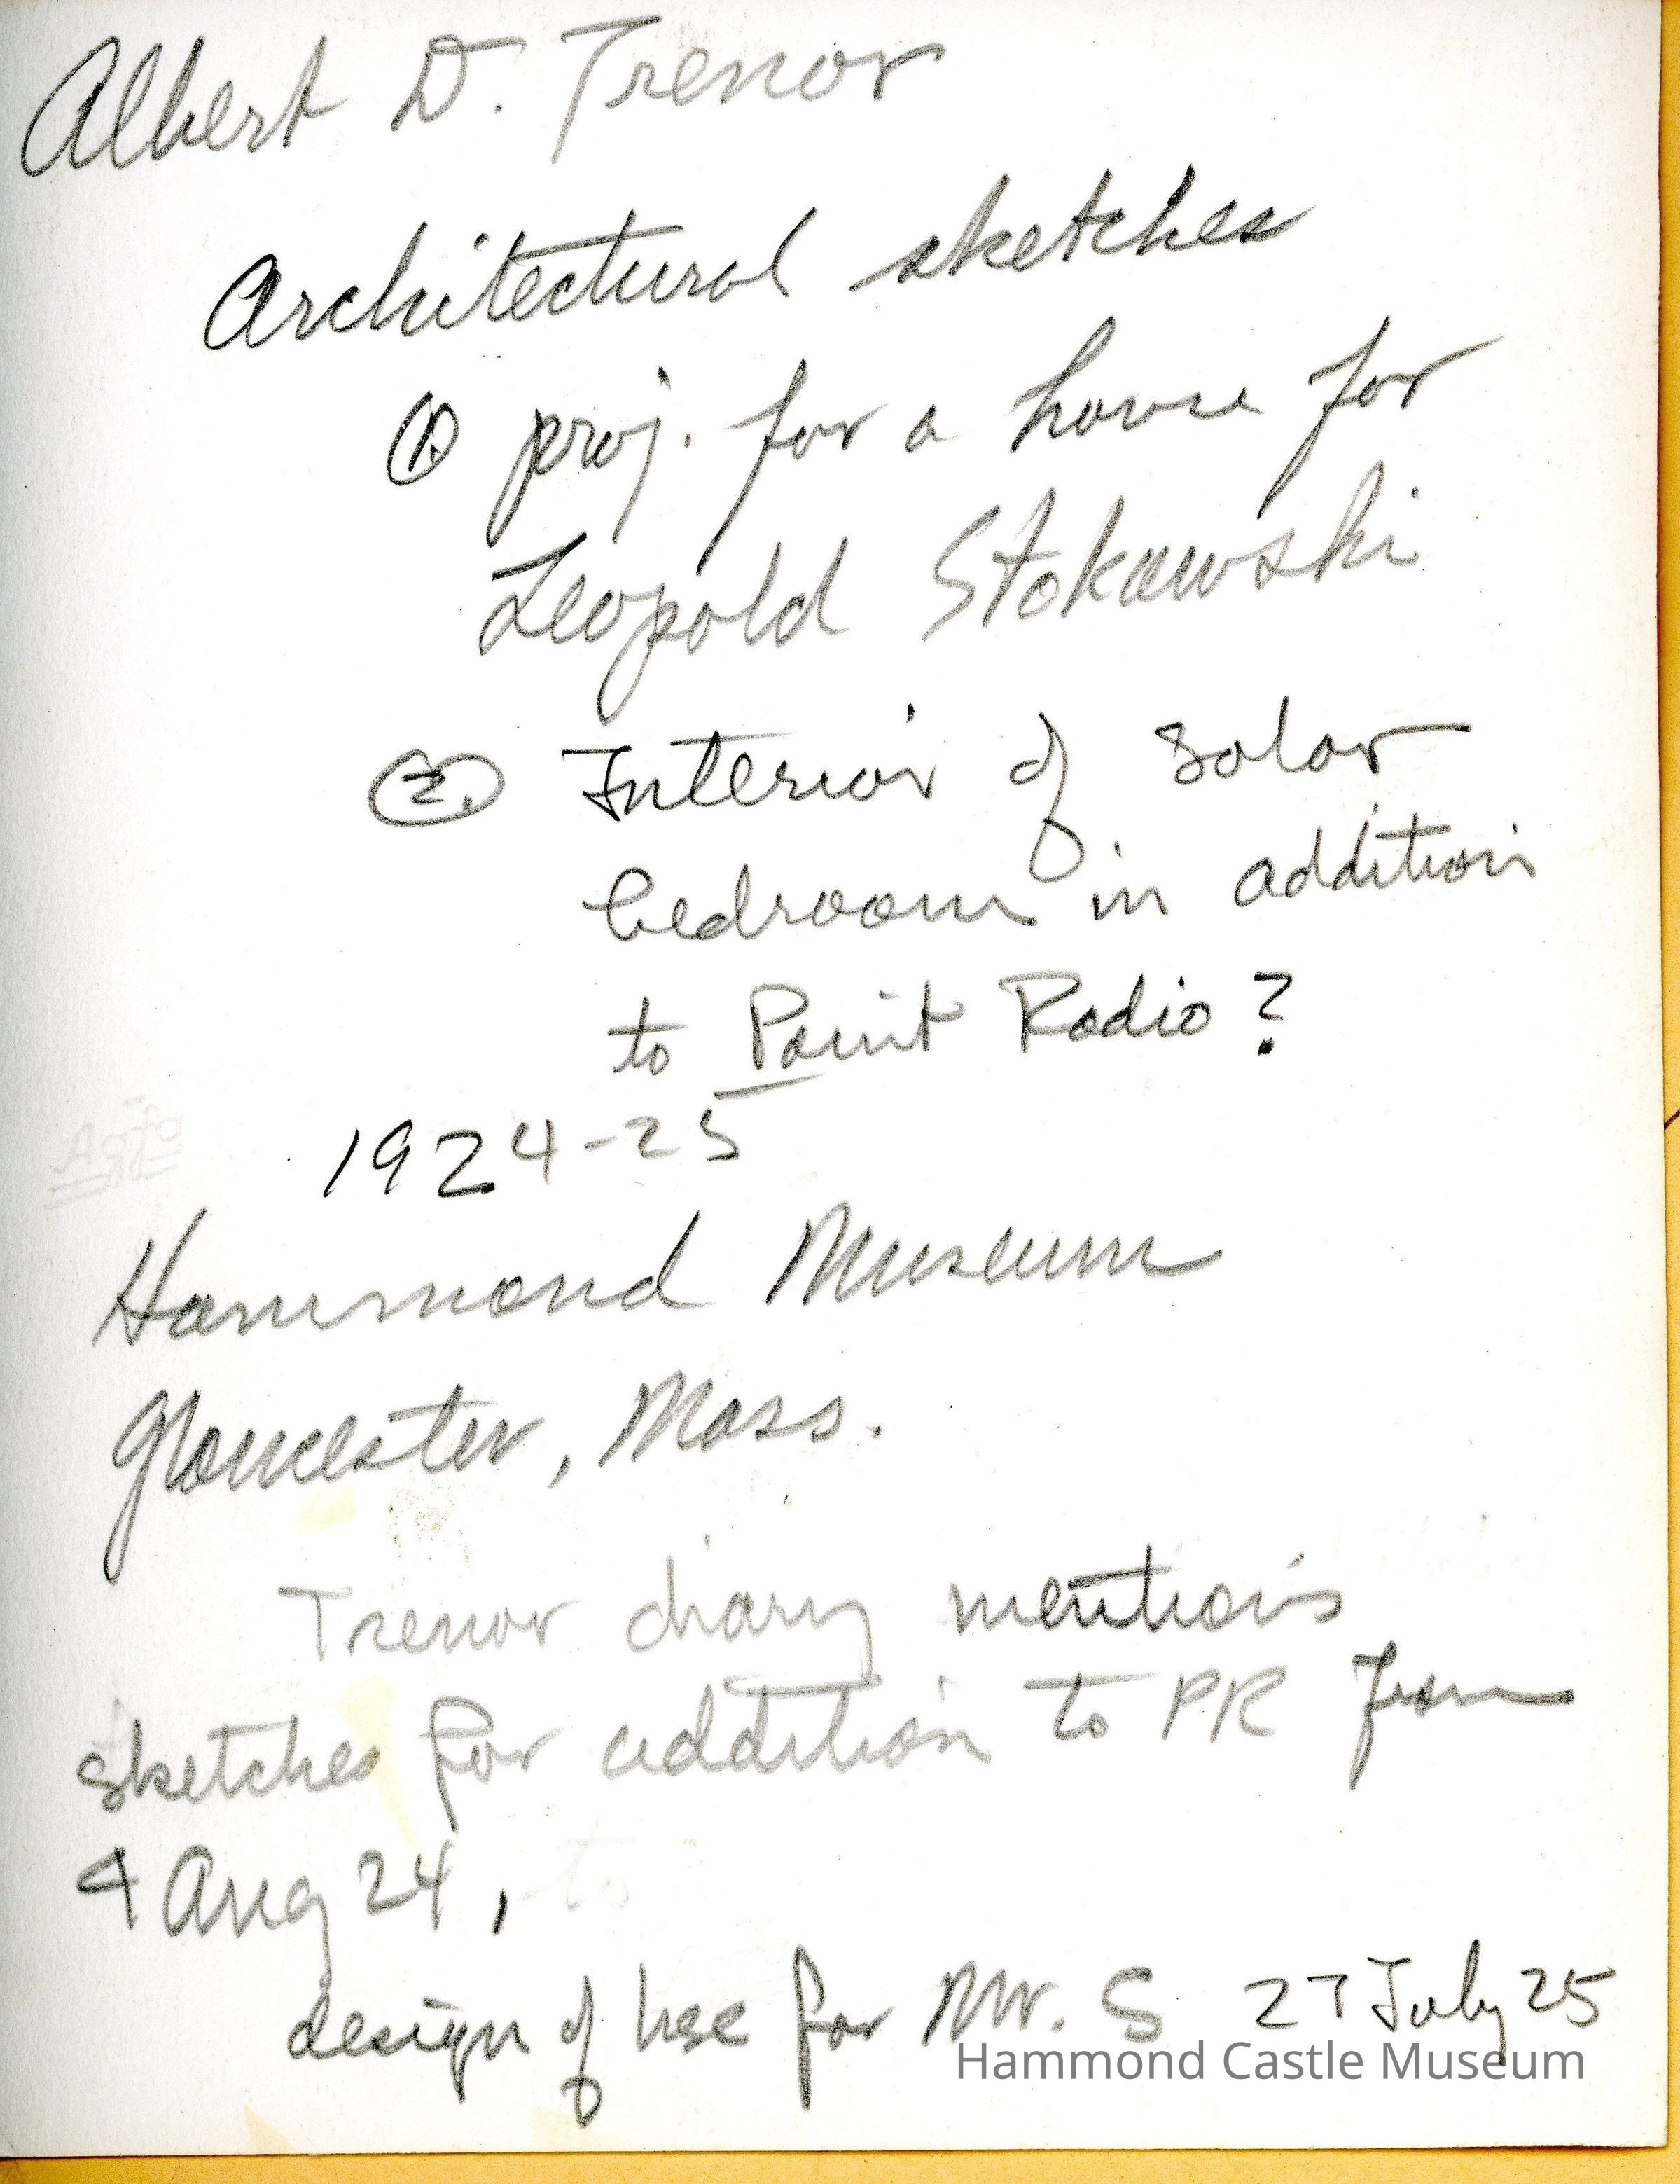 Albert D. Trenor
Architectural sketches
① proj. for a house for
Leopold Stokowski
② Interior of solar
bedroom in addition
to Point Radio?
1924-25
Hammond Museum
Gloucester, Mass.
Trenor diary mentions
sketches for addition to PR from
4 Aug 24, to
design of hse for Mr. S 27 July 25
Hammond Castle Museum
Agfa